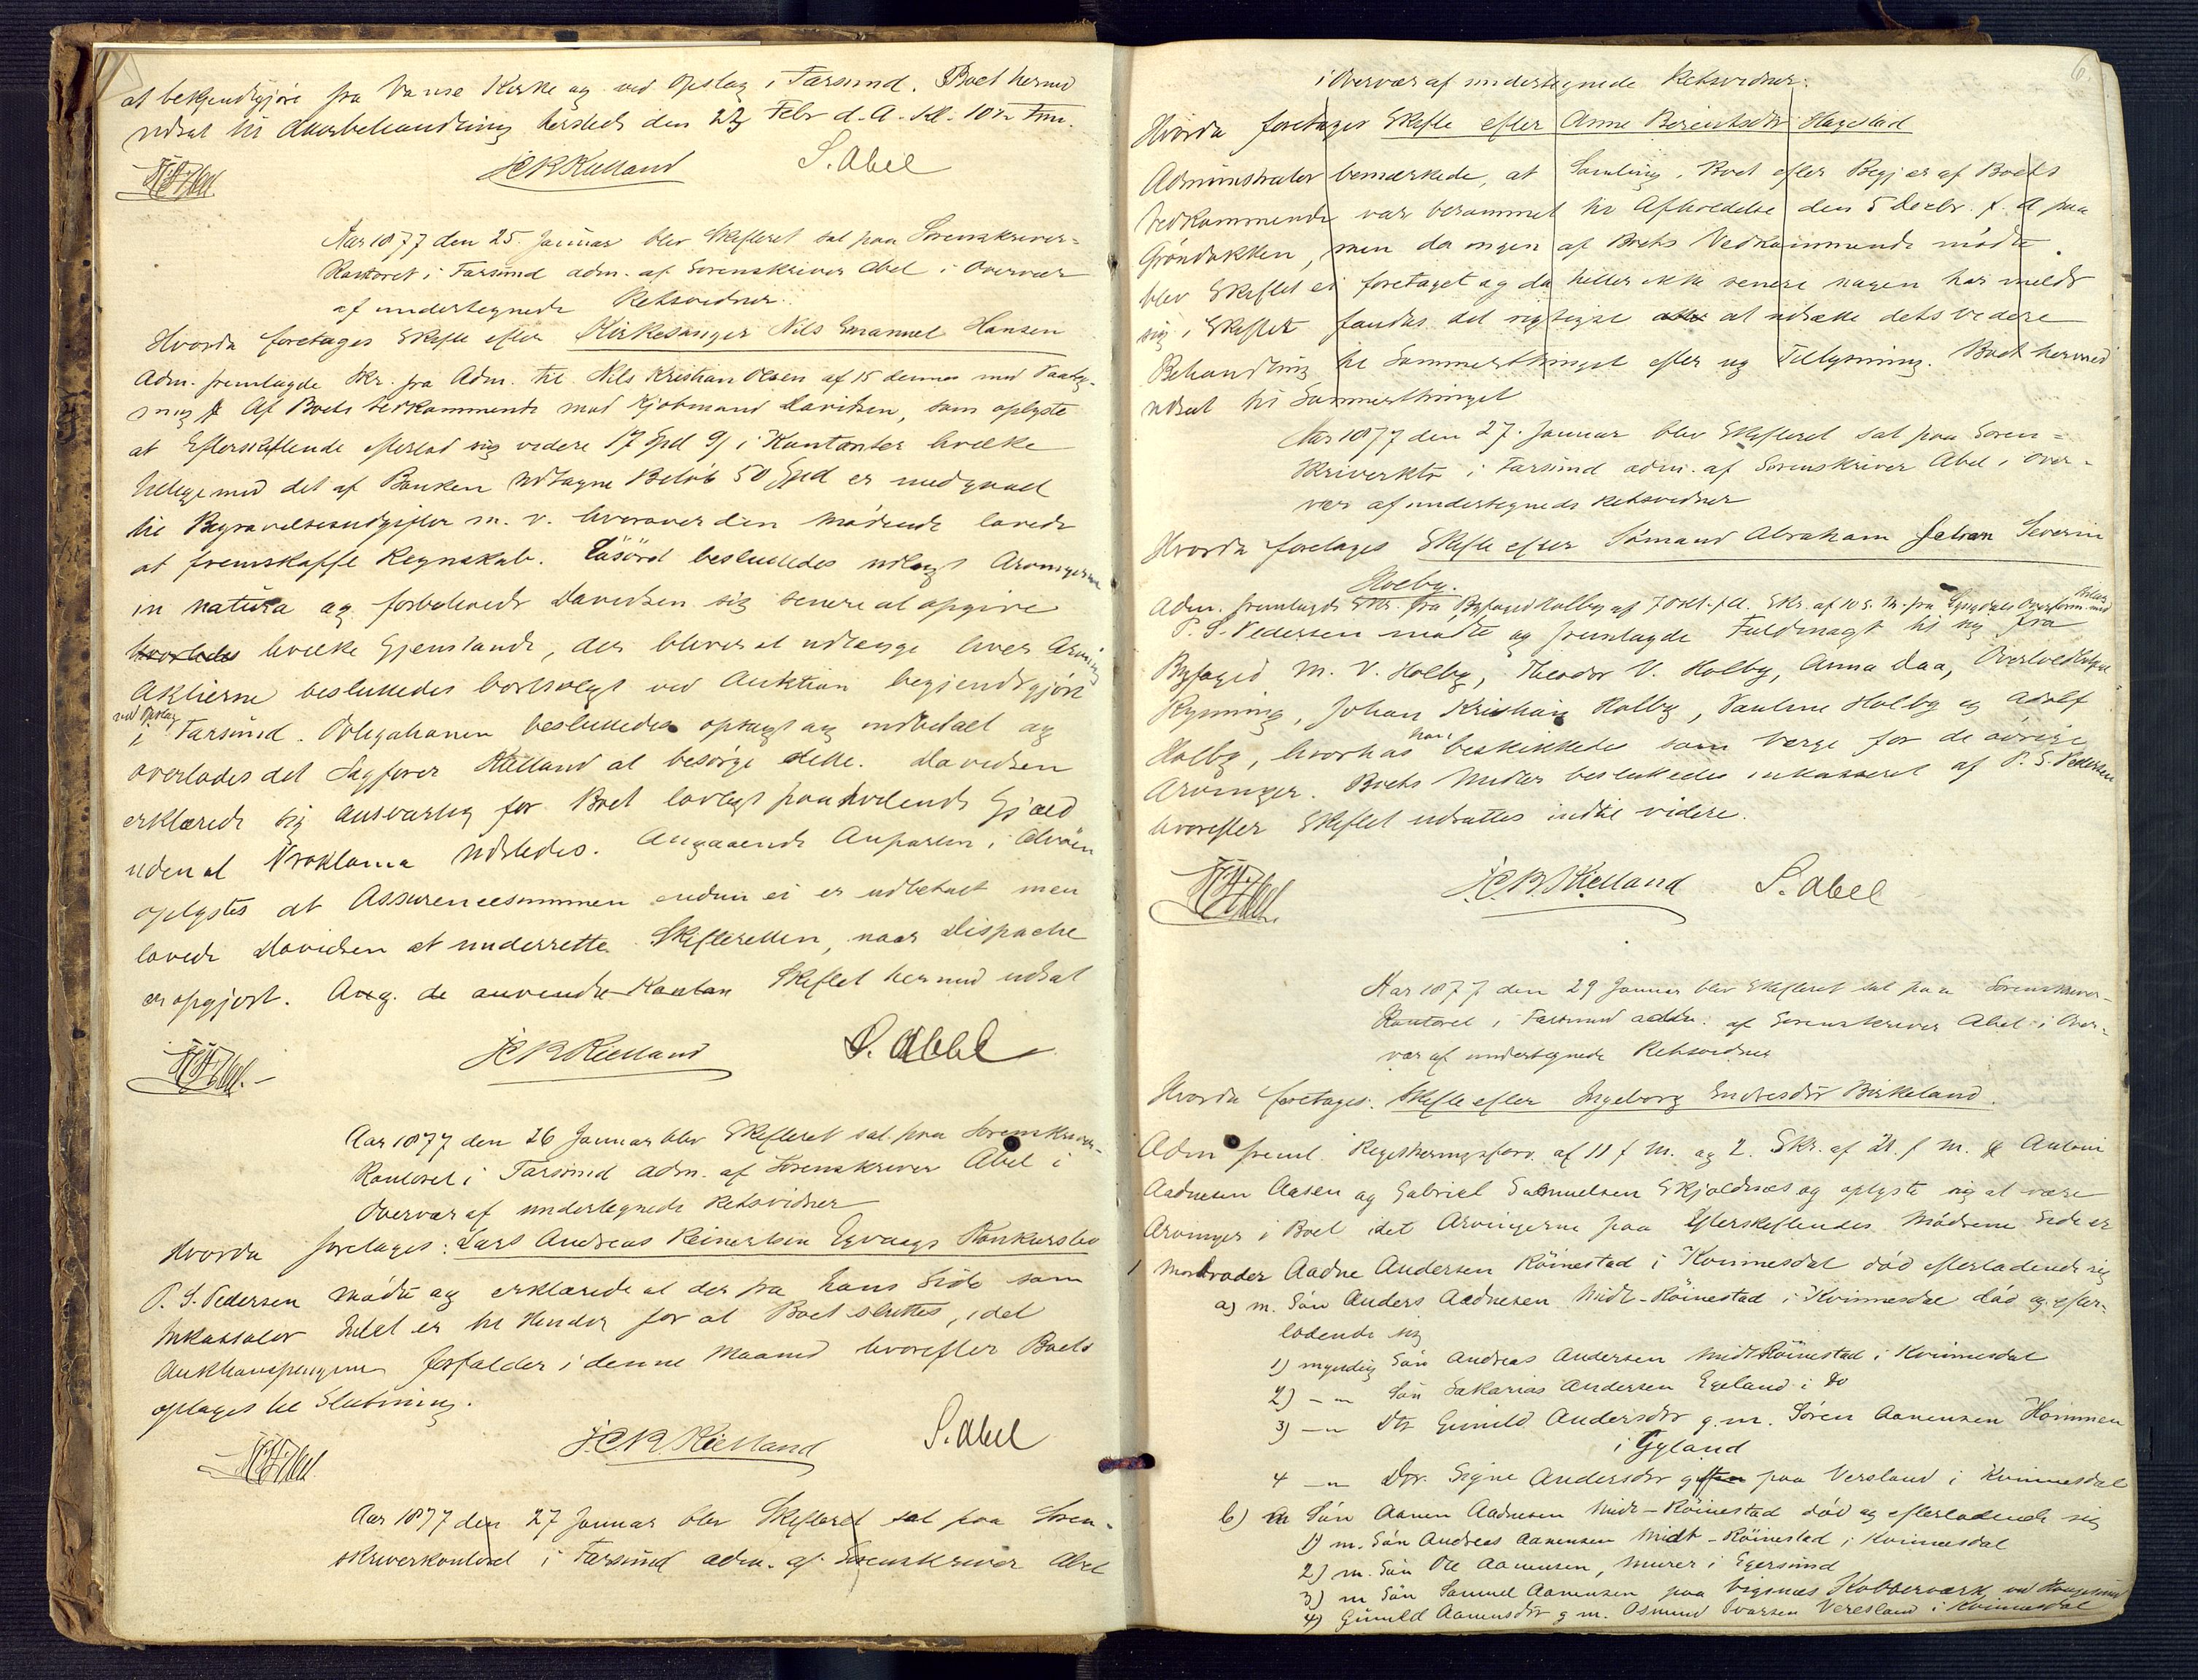 at bekjendtgjøre fra Vanse Kirke og ved Opslag i Farsund. Boet hermed
udsat til Skiftebehandling hersteds den 23 Febr d.A. Kl. 10 Fm.
JCR Kielland S. Abel
Aar 1877 den 25. Januar blev Skifteret sat paa Sorenskriver-
kontoret i Farsund adm. af Sorenskriver Abel i Overvær
af undertegnede Retsvidner:
Hvorda foretages Skifte efter Kirkesanger Nils Emanuel Hansen
Adm. fremlagde Skr. fra Adm. til Nils Kristian Olsen af 15 dennes med Paateg-
ning Af Boets Vedkommende mød Kjøbmand Davidsen, som oplyste
at Efterskiftende efterlod sig videre 17 Spd 9 i Kontanter hvilke
tilligemed det af Banken udtagne Beløb 50 Spd er medgaaet
til Begravelsesudgifter m. v. hvorover den Mødende lovede
at fremskaffe Regnskab. Løsøret besluttedes udlagt Arvingerne
in natura og forbeholdt Davidsen sig senere at opgive
hvorledes hvilke Gjenstande, der bliver at udlægge hver Arving
Aktierne besluttedes bortsolgt ved Auktion begjendtgjort
ved Opslag
i Farsund. Obligationen besluttedes opsagt og indbetalt og
overlodes det Sagfører Kielland at besørge dette. Davidsen
erklærede sig ansvarlig for Boet lovligt paahvilende Gjæld
uden at Proklama udstedes. Angaaende Anparten i Alvøen
oplystes at Assurencesummen endnu ei er udbetalt men
lovede Davidsen at underrette Skifteretten, naar Dispache
er opgjort. Ang. de anvendte Kontan Skiftet hermed udsat
JCR Kielland S. Abel
Aar 1877 den 26 Januar blev Skifteret sat paa Sorenskriver-
kontoret i Farsund adm. af Sorenskriver Abel i
Overvær af undertegnede Retsvidner
Hvorda foretages: Lars Andreas Reinertsen Egvaags Konkursbo
P. S. Pedersen mødte og erklærede at der fra hans Side som
Inkassator Intet er til Hinder for at Boet sluttes, idet
Auktionspengene forfalder i denne Maaned hvorefter Boets
optages til Slutning.
JCR Kielland S. Abel
Aar 1877 den 27 Januar blev Skifteret sat paa Soren-
skriverkontoret i Farsund adm. af Sorenskriver Abel
6.
i Overvær af undertegnede Retsvidner:
Hvorda foretages Skifte efter Anne Berentsdtr Hagestad
Administrator bemærkede, at Samling i Boet efter Begjær af Boets
Vedkommende var berammet til Afholdelse den 5 Decbr. f. A paa
Grøndokken, men da ingen af Boets Vedkommende mødte
blev Skiftet ei foretaget og da heller ikke senere nogen har meldt
sig i Skiftet fandtes det rigtigst at udsætte dets videre
Behandling til Sommerthinget efter ny Tillysning. Boet hermed
udsat til Sommerthinget
Aar 1877 den 27. Januar blev Skifteret sat paa Soren-
skriverktr i Farsund adm. af Sorenskriver Abel i Over-
vær af undertegnede Retsvidner
Hvorda foretages Skifte efter Sømand Abraham Johan Severin
Holby.
Adm. fremlagde Skr. fra Byfoged Holby af 7 Okt. f.A. Skr. af 10 s. M. fra Lyngdals Overform. med
P. S. Pedersen mødte og fremlagde Fuldmagt til sig fra
Byfoged M. V. Holby, Theodor V. Holby, Anna Daa,
Rynning, Johan Kristian Holby, Pauline Holby og Adolf
Holby, hvorhos han beskikkedes som Værge for de øvrige
Arvinger. Boets Midler besluttedes inkasseret af P. S. Pedersen
hvorefter Skiftet udsattes indtil videre.
J.C.R. Kielland S. Abel
Aar 1877 den 29 Januar blev Skifteret sat paa Sorenskriver-
kontoret i Farsund adm. af Sorenskriver Abel i Over-
vær af undertegnede Retsvidner
Hvorda foretages. Skifte efter Ingeborg Endresdtr Birkeland.
Adm freml. Registreringsforr. af 11 f M. og 2. Skr. af 21. f M. Antoni
Aadnesen Aasen og Gabriel Samuelsen Skjoldnes og oplyste sig at være
Arvinger i Boet idet Arvingerne paa Efterskiftendes Mødrene Side er
1 Morbroder Aadne Andersen Røinestad i Kvinnesdal død efterladende sig
a) m. Søn Anders Aadnesen Midt-Røinestad i Kvinnesdal død og efter-
ladende sig
1) myndig Søn Andreas Andersen Midt Røinestad i Kvinnesdal
2) — " Søn Sakarias Andersen Egeland i Do
3) — " Dtr Gunild Andersdtr g. m. Søren Aanensen Hommen
i Gyland
4 — " Dtr. Signe Andersdtr gift paa Versland i Kvinnesdal
b) Søn Aanen Aadnesen Midt-Røinestad død og efterladende sig
1) m. Søn Andreas Aanensen Midt-Røinestad i Kvinnesdal
2) m. Søn Ole Aanensen, Murer i Egersund
3) m Søn Samuel Aanensen paa Vigsnæs Kobberværk ved Haugesund
4) Gunild Aanensdtr g m. Osmund Ivarsen Versland i Kvinnesdal